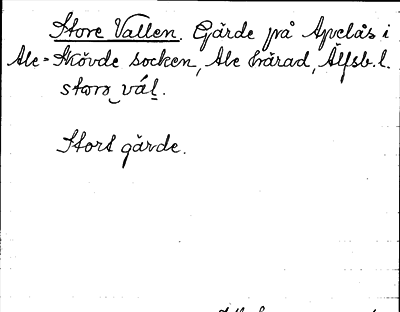 Store Vallen. Gärde på Apelås i
Ale-Skövde socken, Ale härad, Älfsb. l.
storə vál.
Stort gärde.